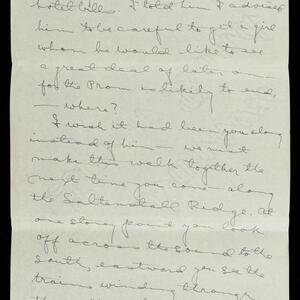 hotel bills. I told him I advised
him to be careful to get a girl
whom he would like to see
a great deal of later on —
for the Prom is likely to end,
— where?
I wish it had been you along
instead of him — we must
make this walk together the
next time you come — along
the Saltonstall Ridge. At
one stoney point you look
off across the sound to the
south, eastward you see the
trains winding through